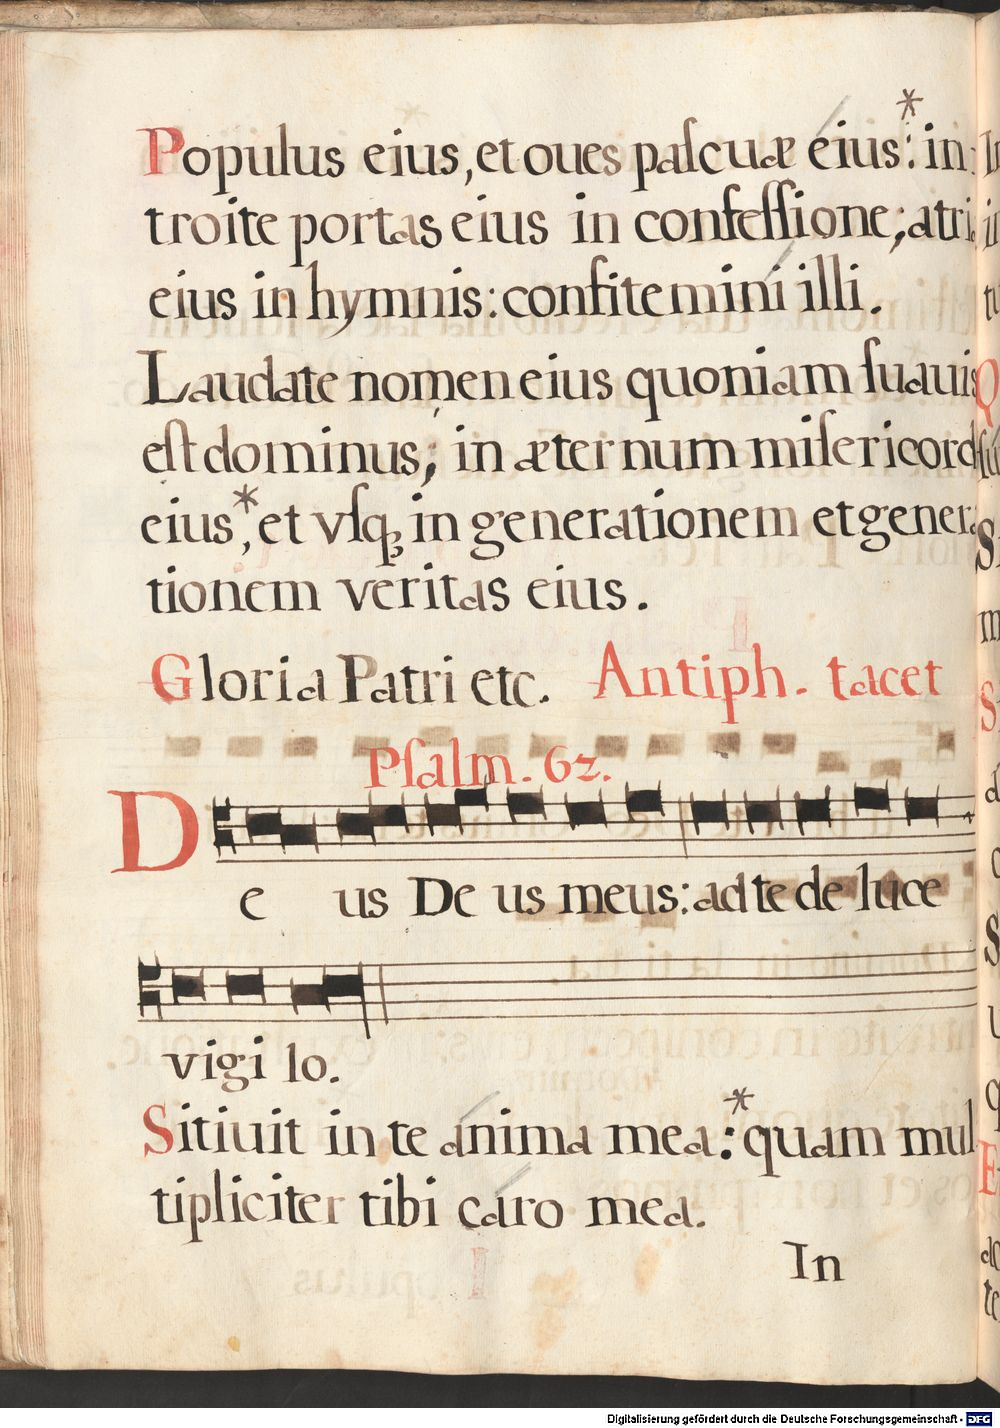 Populus eius, et oues paſcuæ eius:* in
troite portas eius in confeſſione; atri
eius in hymnis: confitemini illi.
Laudate nomen eius quoniam ſuauis
eſt dominus; in æternum miſericord
eius,* et vſq; in generationem et genera
tionem veritas eius.
Gloria Patri etc. Antiph. tacet
Pſalm. 62.
De us De us meus: ad te de luce
vigi lo.
Sitiuit in te anima mea:* quam mul
tipliciter tibi caro mea.
In
Digitalisierung gefördert durch die Deutsche Forschungsgemeinschaft - DFG